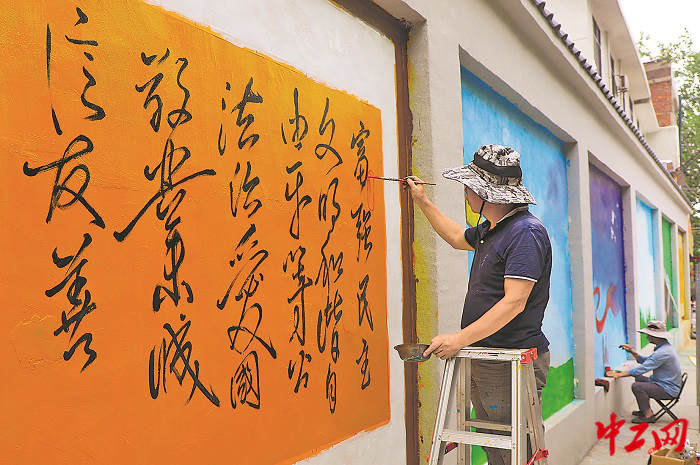 富强民主
文明和谐自
由平等公
法治愛國
敬業诚
信友善
中工网